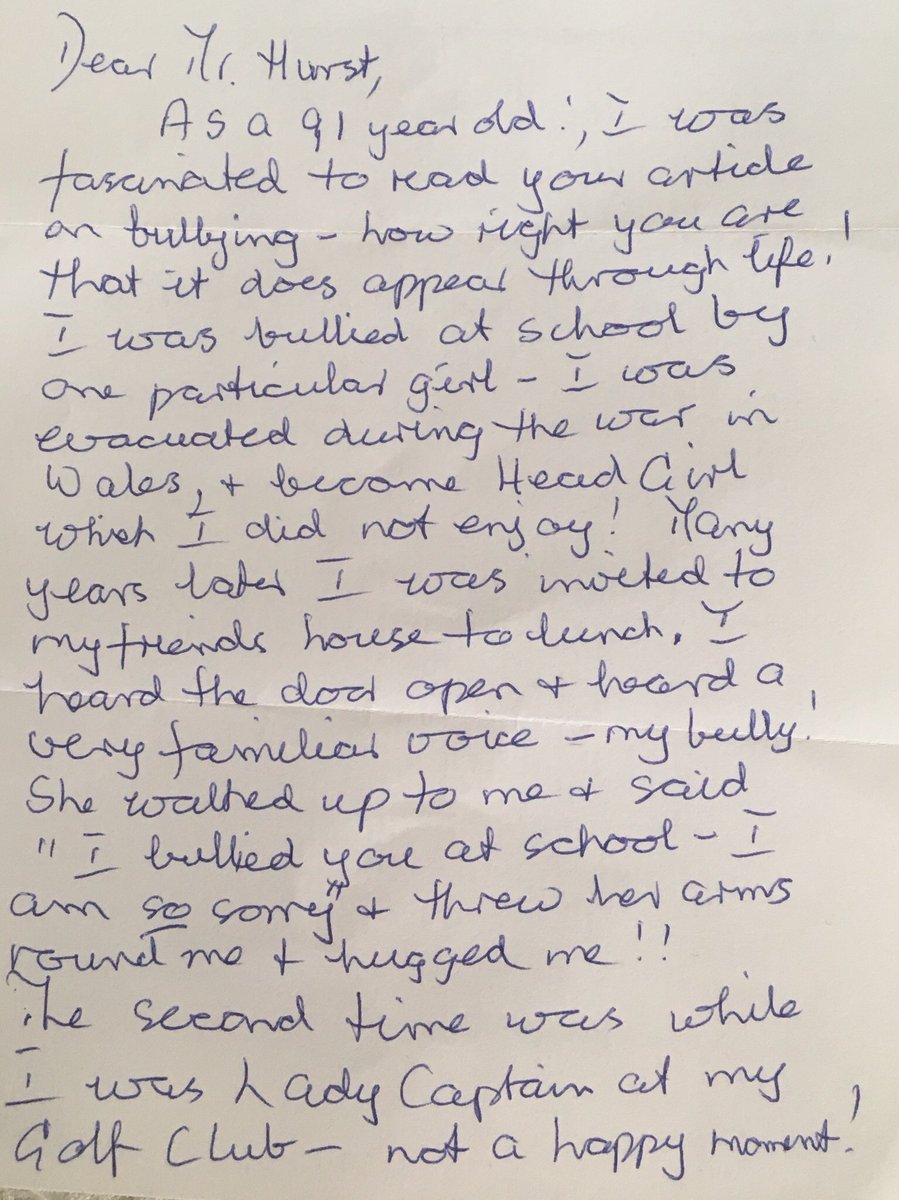 Dear Mr. Hurst,
As a 91 year old!, I was
fascinated to read your article
on bullying - how right you are
that it does appear through life!
I was bullied at school by
one particular girl - I was
evacuated during the war in
Wales, + become Head Girl
which I did not enjoy! Many
years later I was invited to
my friends house to lunch. I
heard the door open + heard a
very familiar voice - my bully!
She walked up to me + said
"I bullied you at school - I
am so sorry" + threw her arms
round me + hugged me!!
The second time was while
I was Lady Captain at my
Golf Club - not a happy moment!